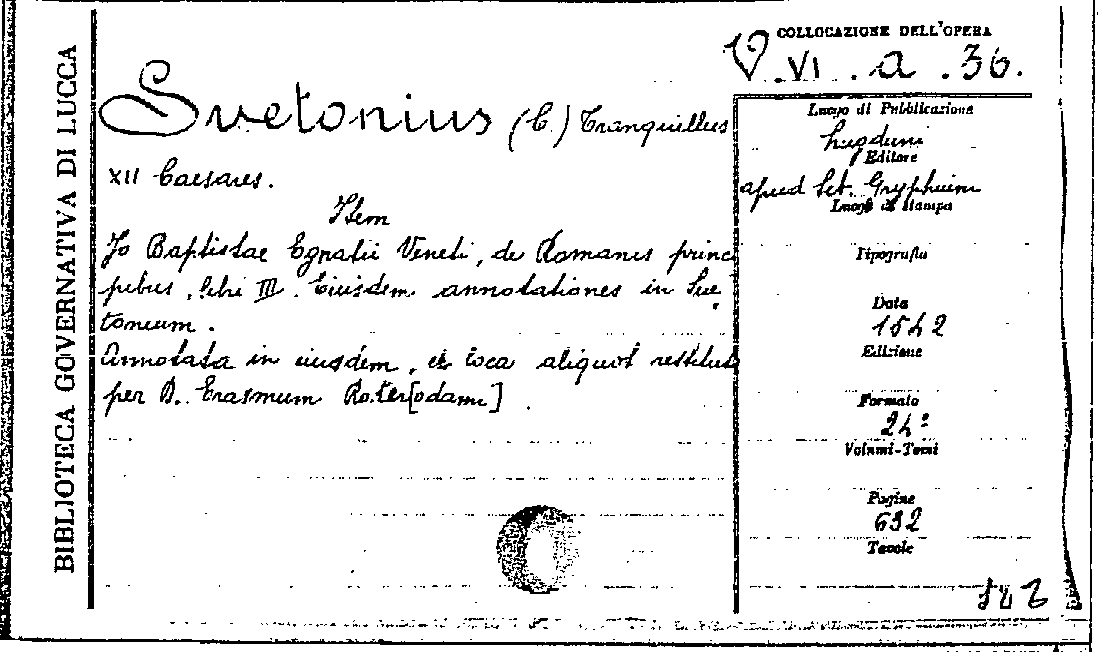 BIBLIOTECA GOVERNATIVA DI LUCCA
COLLOCAZIONE DELL'OPERA
VI . a . 36.
Svetonius (C.) Tranquillus
XII Caesares.
Item
Jo Baptistae Egnatii Veneti, de Romanis princi
pibus, libri III. Eiusdem annotationes in Sue
tonium.
Annotata in eiusdem, et loca aliquot restituta
per D. Erasmum Roter[odami]
Luogo di Pubblicazione
Lugduni
Editore
apud Seb. Gryphium
Luogo di stampa
Tipografia
Data
1542
Edizione
Formato
24°
Volumi-Tomi
Pagine
632
Tavole